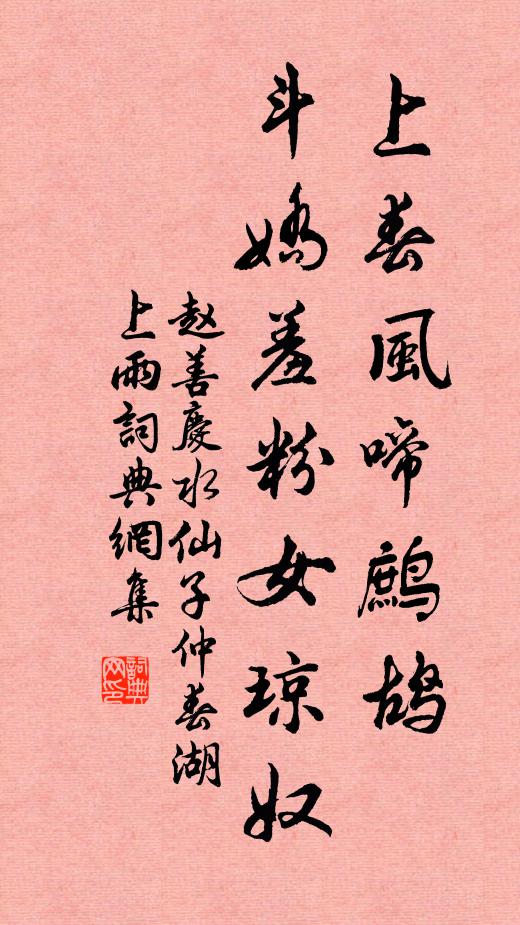 上春風啼鷓鴣
斗嬌羞粉女琼奴
赵善慶水仙子仲春湖
上雨詞典網集
詞典
网印